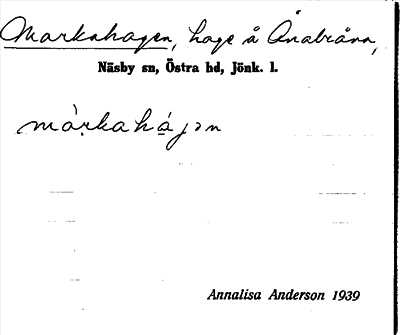 Markahagen, hage å Ånabråna,
Näsby sn, Östra hd, Jönk. l.
màrkahájən
Annalisa Anderson 1939